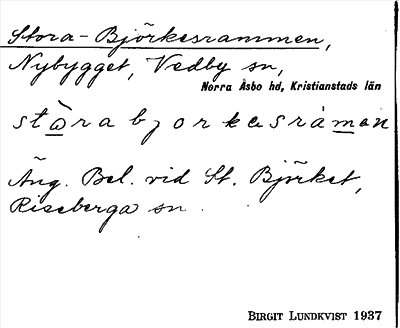 Stora-Björkesrammen,
Nybygget, Vedby sn,
Norra Åsbo hd, Kristianstads län
Äng. Bel. vid St. Björket,
Riseberga sn.
BIRGIT LUNDKVIST 1937